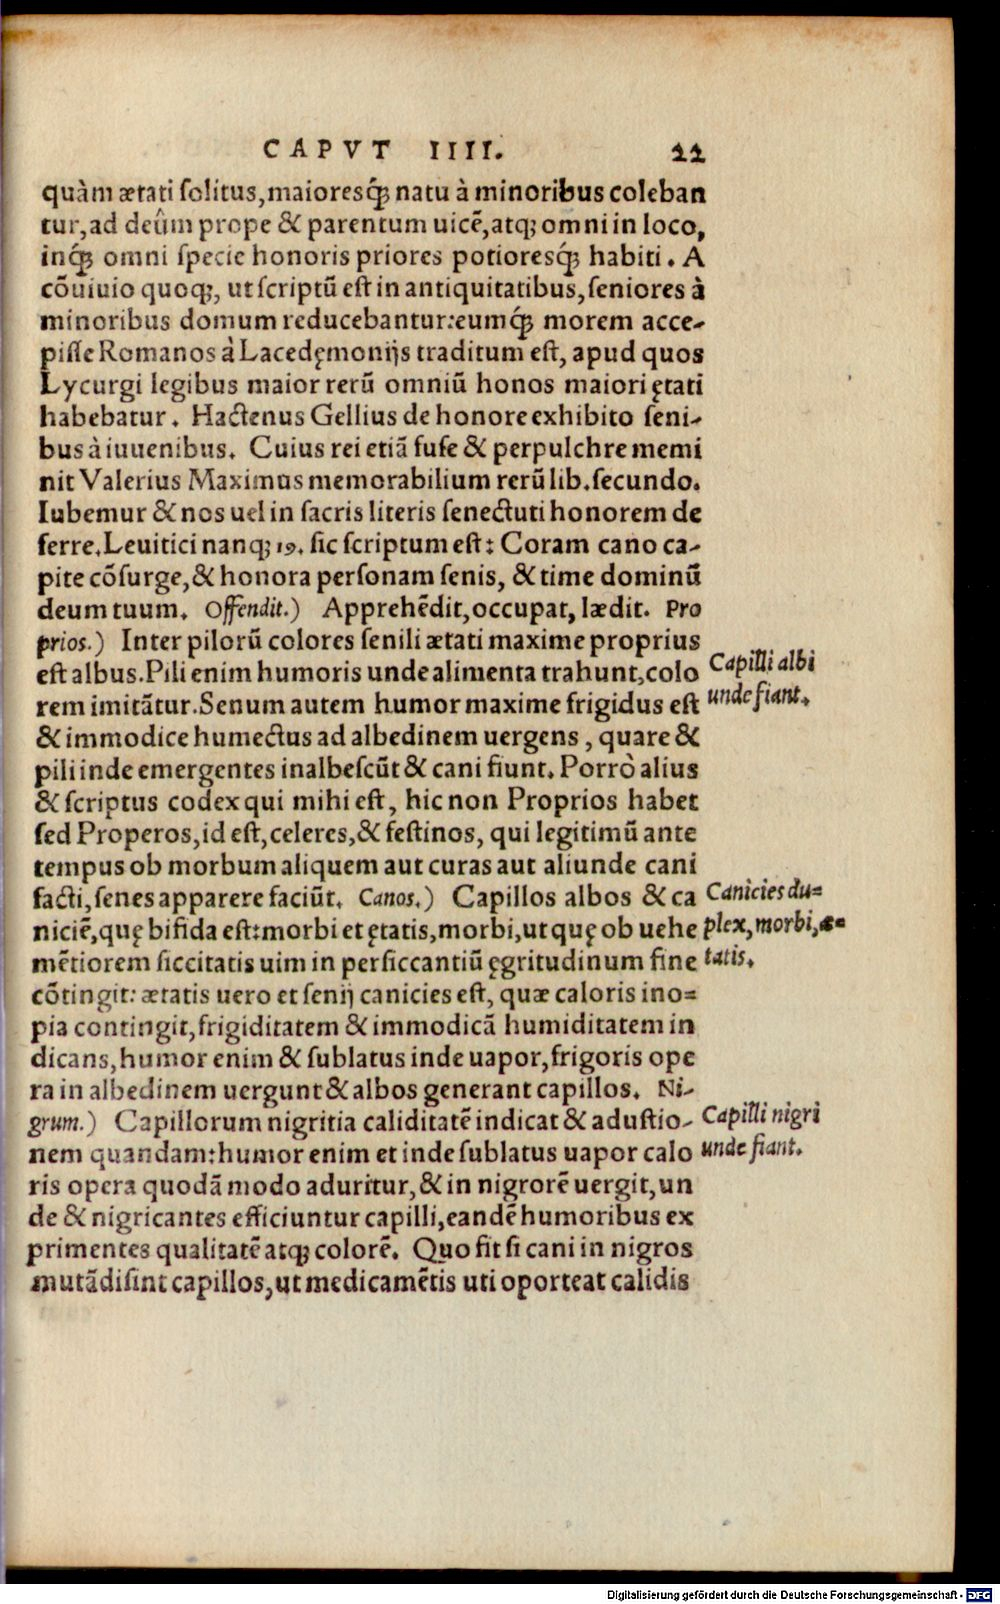 CAPVT IIII. 22
quàm ætati solitus, maioresq́; natu à minoribus coleban
tur, ad deûm prope & parentum uicē, atq; omni in loco,
inq́; omni specie honoris priores potioresq́; habiti. A
cōuiuio quoq;, ut scriptū est in antiquitatibus, seniores à
minoribus domum reducebantur: eumq́; morem acce-
pisse Romanos à Lacedęmonijs traditum est, apud quos
Lycurgi legibus maior rerū omniū honos maiori ętati
habebatur. Hactenus Gellius de honore exhibito seni-
bus à iuuenibus. Cuius rei etiā fuse & perpulchre memi
nit Valerius Maximus memorabilium rerū lib. secundo.
Iubemur & nos uel in sacris literis senectuti honorem de
ferre. Leuitici nanq; 19. sic scriptum est: Coram cano ca-
pite cōsurge, & honora personam senis, & time dominū
deum tuum. Offendit.) Apprehēdit, occupat, lædit. Pro
prios.) Inter pilorū colores senili ætati maxime proprius
est albus. Pili enim humoris unde alimenta trahunt, colo
rem imitātur. Senum autem humor maxime frigidus est
& immodice humectus ad albedinem uergens, quare &
pili inde emergentes inalbescūt & cani fiunt. Porrò alius
& scriptus codex qui mihi est, hic non Proprios habet
sed Properos, id est, celeres, & festinos, qui legitimū ante
tempus ob morbum aliquem aut curas aut aliunde cani
facti, senes apparere faciūt. Canos.) Capillos albos & ca
niciē, quę bifida est: morbi et ętatis, morbi, ut quę ob uehe
mētiorem siccitatis uim in persiccantiū ęgritudinum fine
cōtingit: ætatis uero et senij canicies est, quæ caloris ino=
pia contingit, frigiditatem & immodicā humiditatem in
dicans, humor enim & sublatus inde uapor, frigoris ope
ra in albedinem uergunt & albos generant capillos. Ni-
grum.) Capillorum nigritia caliditatē indicat & adustio-
nem quandam: humor enim et inde sublatus uapor calo
ris opera quodā modo aduritur, & in nigrorē uergit, un
de & nigricantes efficiuntur capilli, eandē humoribus ex
primentes qualitatē atq; colorē. Quo fit si cani in nigros
mutādi sint capillos, ut medicamētis uti oporteat calidis
Capilli albi
unde fiant.
Canicies du=
plex, morbi, æ=
tatis.
Capilli nigri
unde fiant.
Digitalisierung gefördert durch die Deutsche Forschungsgemeinschaft - DFG